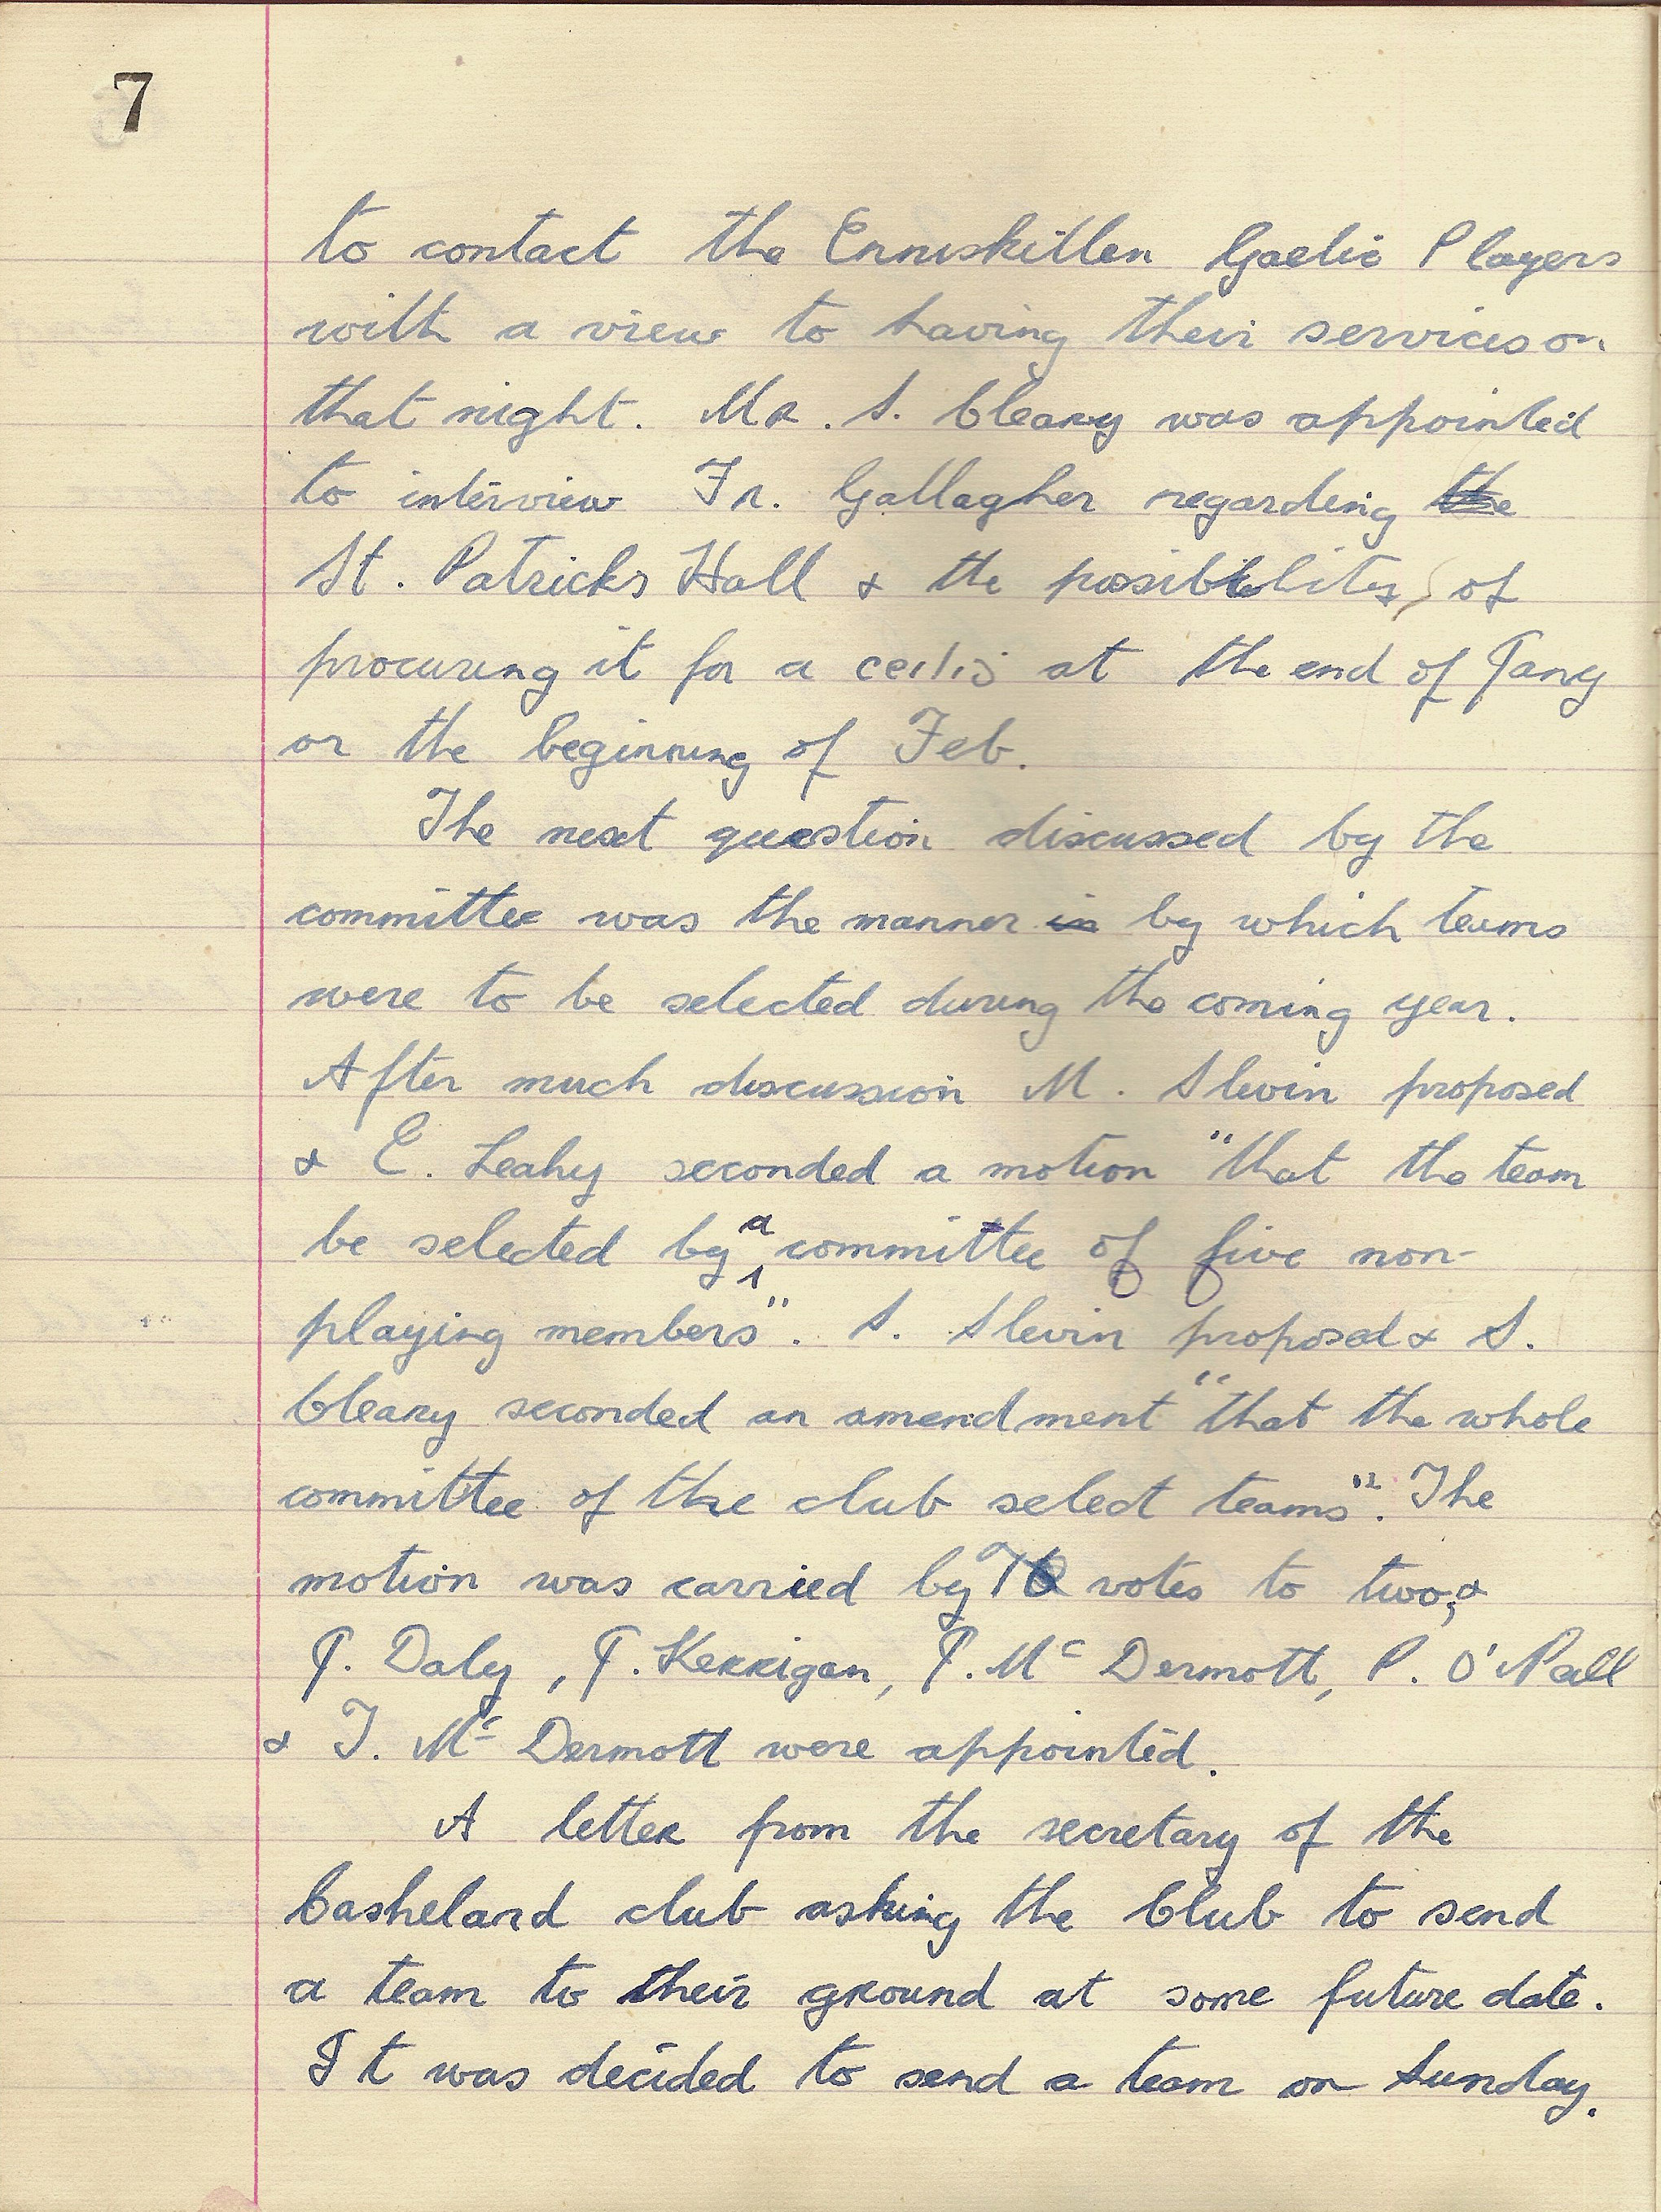 7
to contact the Enniskillen Gaelic Players
with a view to having their services on
that night. Mr. S. Cleary was appointed
to interview Fr. Gallagher regarding the
St. Patricks Hall & the possiblity of
procuring it for a ceilió at the end of Jany
or the beginning of Feb.
The next question discussed by the
committee was the manner in by which teams
were to be selected during the coming year.
After much discussion M. Slevin proposed
& E. Leahy seconded a motion "that the team
be selected by a committee of five non-
playing members". S. Slevin proposed & S.
Cleary seconded an amendment "that the whole
committee of the club select teams". The
motion was carried by votes to two, &
J. Daly, J. Kerrigan, P. Mc Dermott, P. O'Neill
& T. Mc Dermott were appointed.
A letter from the secretary of the
Cashelard club asking the Club to send
a team to their ground at some future date.
It was decided to send a team on Sunday.